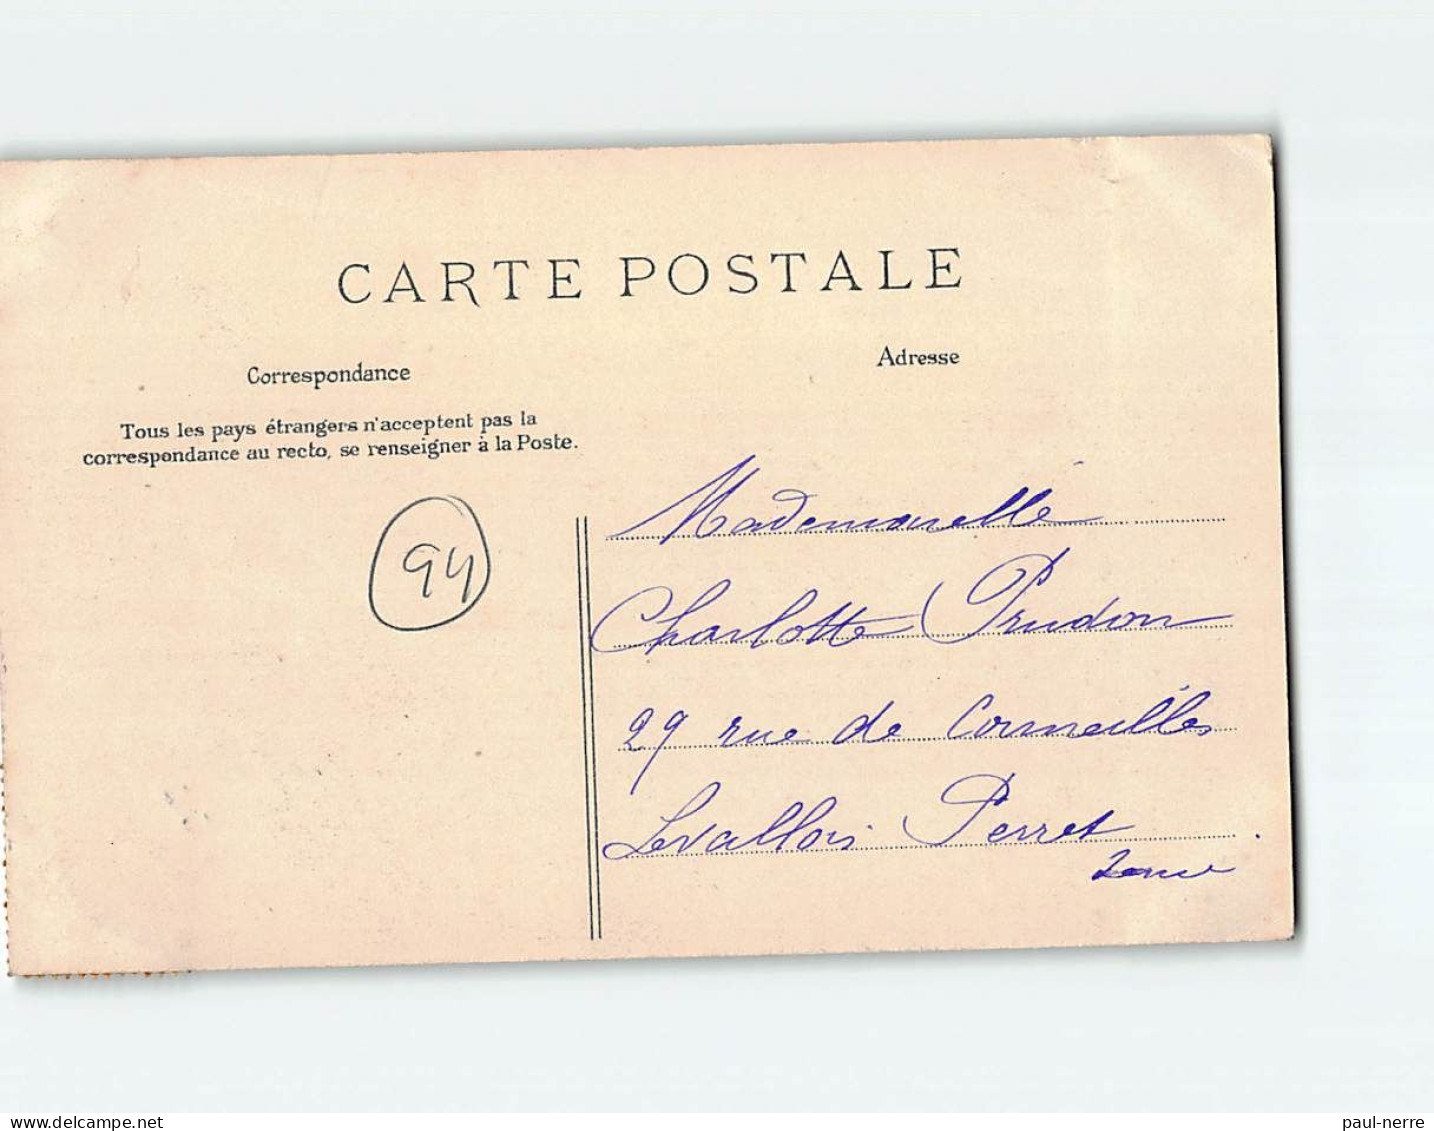 CARTE POSTALE
Correspondance
Adresse
Tous les pays étrangers n'acceptent pas la
correspondance au recto, se renseigner à la Poste.
94
Mademoiselle
Charlotte Prudon
29 rue de Cormeilles
Levallois Perret
Seine
paul-nerre